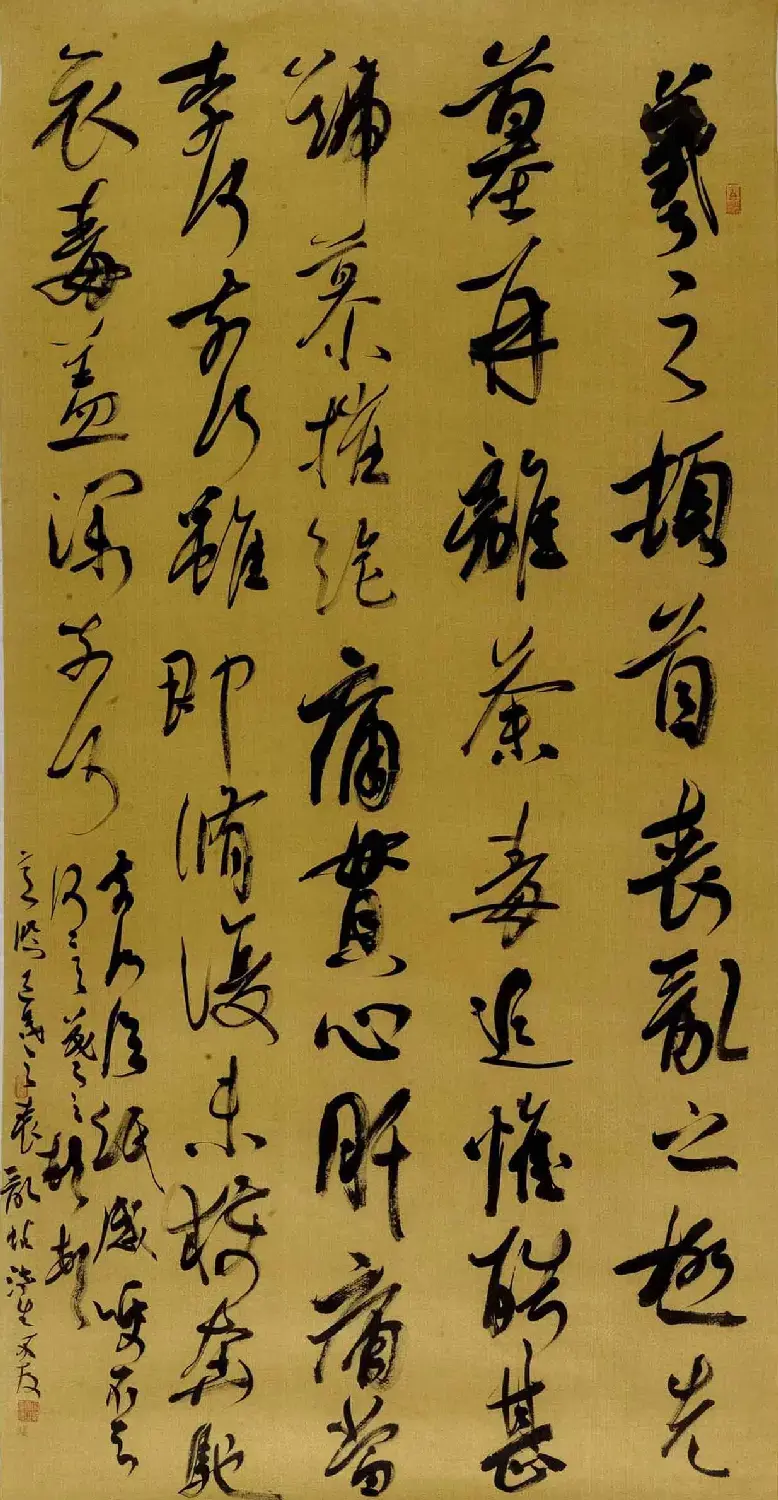 羲之頓首喪亂之極先
墓再離荼毒追惟酷甚
號慕摧絕痛貫心肝痛當
奈何奈何雖即脩復未獲奔馳
哀毒益深奈何
奈何臨紙感哽不知
何言羲之頓首頓首
意臨王羲之喪亂帖